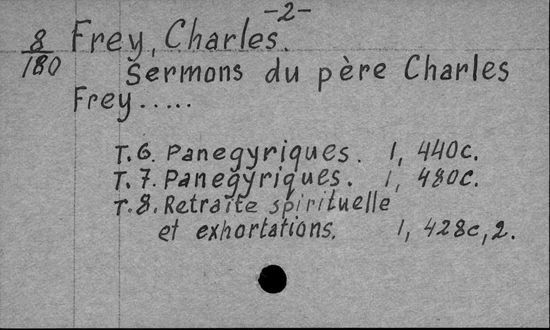 -2-
8/180 Frey, Charles.
Sermons du père Charles
Frey.....
T.6. Panegyriques. 1, 440c.
T.7. Panegyriques. 1, 480c.
T.8. Retraite spirituelle
et exhortations. 1, 428c, 2.